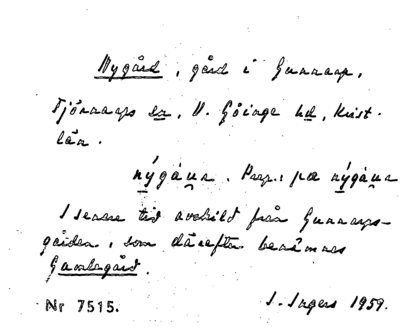 Nygård, gård i Gunnarp,
Tjörnarps sn, V. Göinge hd, Krist.
län.
nýgȧ̊ɳ. Prep.: pǽ nýgȧ̊ɳ
I senare tid avskild från Gunnarps-
gården, som därefter benämnes
Gamlegård.
Nr 7515. I. Ingers 1959.